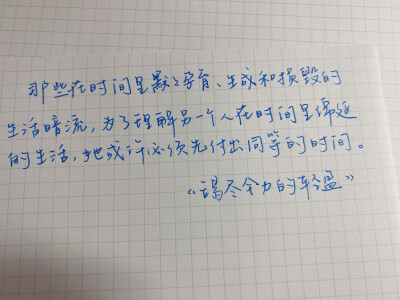 那些在时间里默々孕育、生成和损毁的
生活暗流，为了理解另一个人在时间里绵延
的生活，她或许必须先付出同等的时间。
《竭尽全力的轻盈》